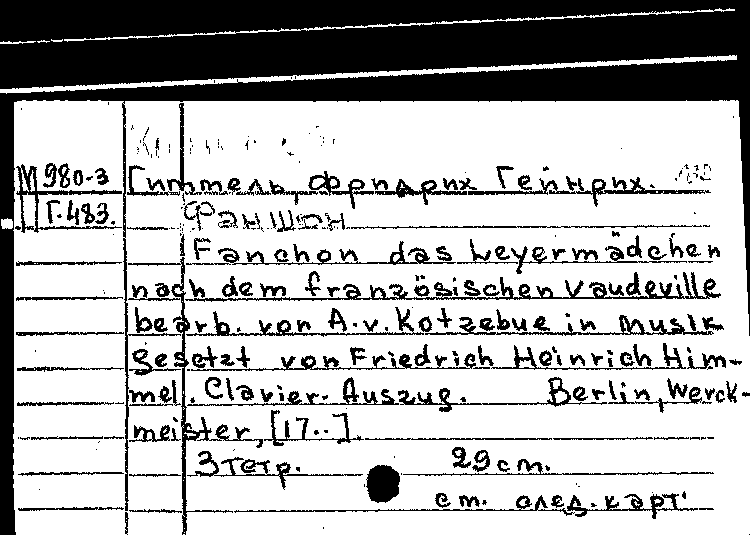 М 980-3 Гиммель, Фридрих Гейнрих.
Г.483. Фаншон
Fanchon das Leyermädchen
nach dem französischen Vaudeville
bearb. von A.v. Kotzebue in Musik
gesetzt von Friedrich Heinrich Him-
mel. Clavier-Auszug. Berlin, Werck-
meister, [17..].
3 тетр. 29 cm.
см. след. карт.